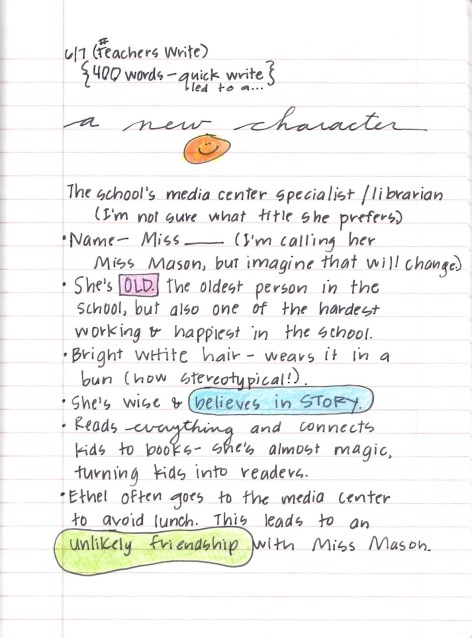 6/7 (#Teachers Write)
{400 words - quick write}
led to a...
a new character
The school's media center specialist/librarian
(I'm not sure what title she prefers)
• Name - Miss ____ (I'm calling her
Miss Mason, but imagine that will change)
• She's OLD. The oldest person in the
school, but also one of the hardest
working & happiest in the school.
• Bright white hair - wears it in a
bun (how stereotypical!).
• She's wise & believes in STORY.
• Reads everything and connects
kids to books - she's almost magic,
turning kids into readers.
• Ethel often goes to the media center
to avoid lunch. This leads to an
unlikely friendship with Miss Mason.